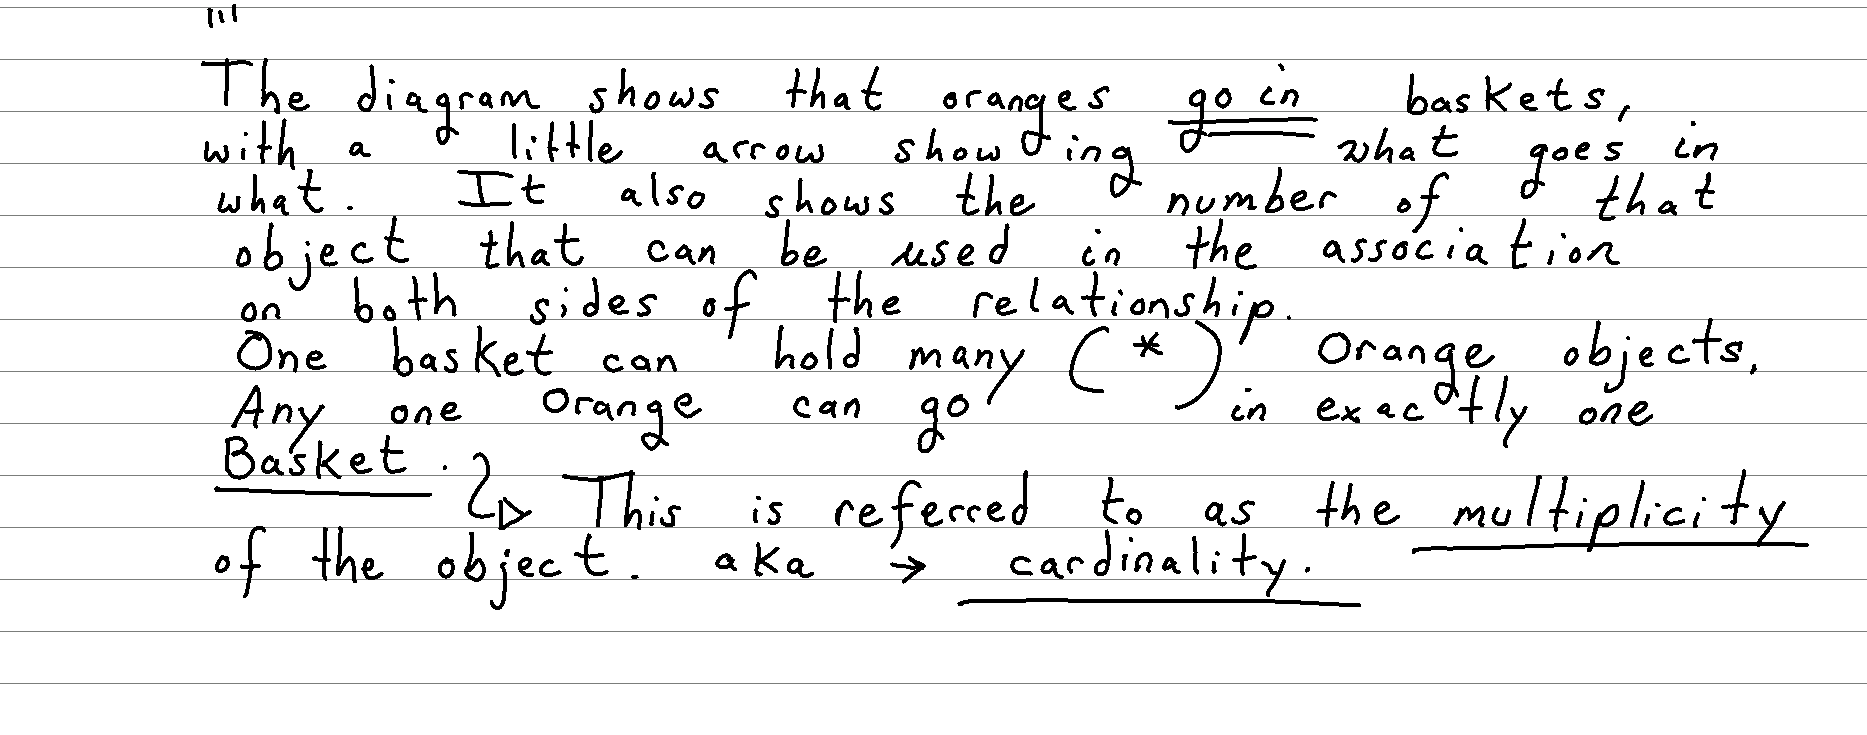 "'
The diagram shows that oranges go in baskets,
with a little arrow showing what goes in
what. It also shows the number of that
object that can be used in the association
on both sides of the relationship.
One basket can hold many (*) Orange objects,
Any one Orange can go in exactly one
Basket. This is referred to as the multiplicity
of the object. aka → cardinality.